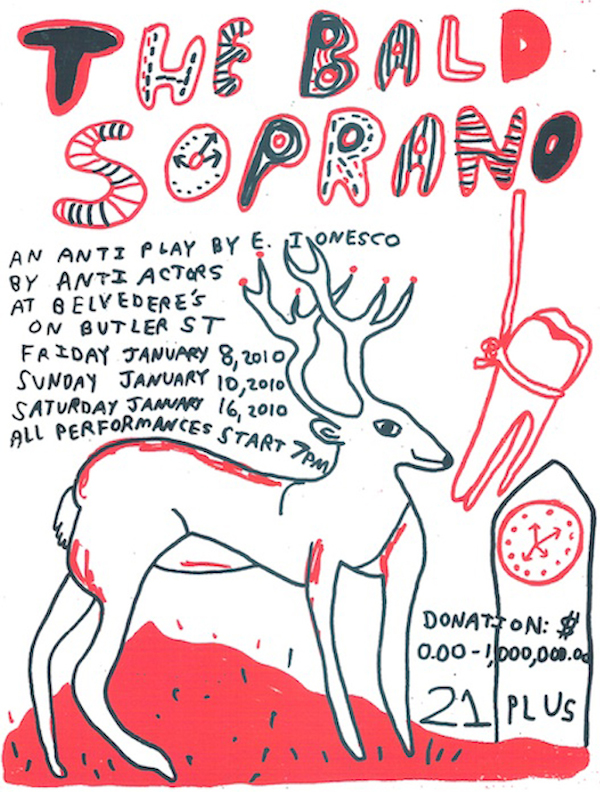 THE BALD
SOPRANO
AN ANTI PLAY BY E. IONESCO
BY ANTI ACTORS
AT BELVEDERE'S
ON BUTLER ST
FRIDAY JANUARY 8, 2010
SUNDAY JANUARY 10, 2010
SATURDAY JANUARY 16, 2010
ALL PERFORMANCES START 7PM
DONATION: $
0.00-1,000,000.00
21 PLUS